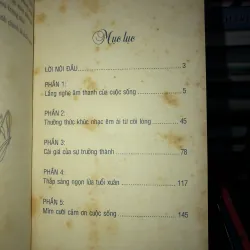 Mục lục
LỜI NÓI ĐẦU 3
PHẦN 1:
Lắng nghe âm thanh của cuộc sống 5
PHẦN 2:
Thưởng thức khúc nhạc êm ái từ cõi lòng 45
PHẦN 3:
Cái giá của sự trưởng thành 78
PHẦN 4:
Thắp sáng ngọn lửa tuổi xuân 117
PHẦN 5:
Mỉm cười cảm ơn cuộc sống 145